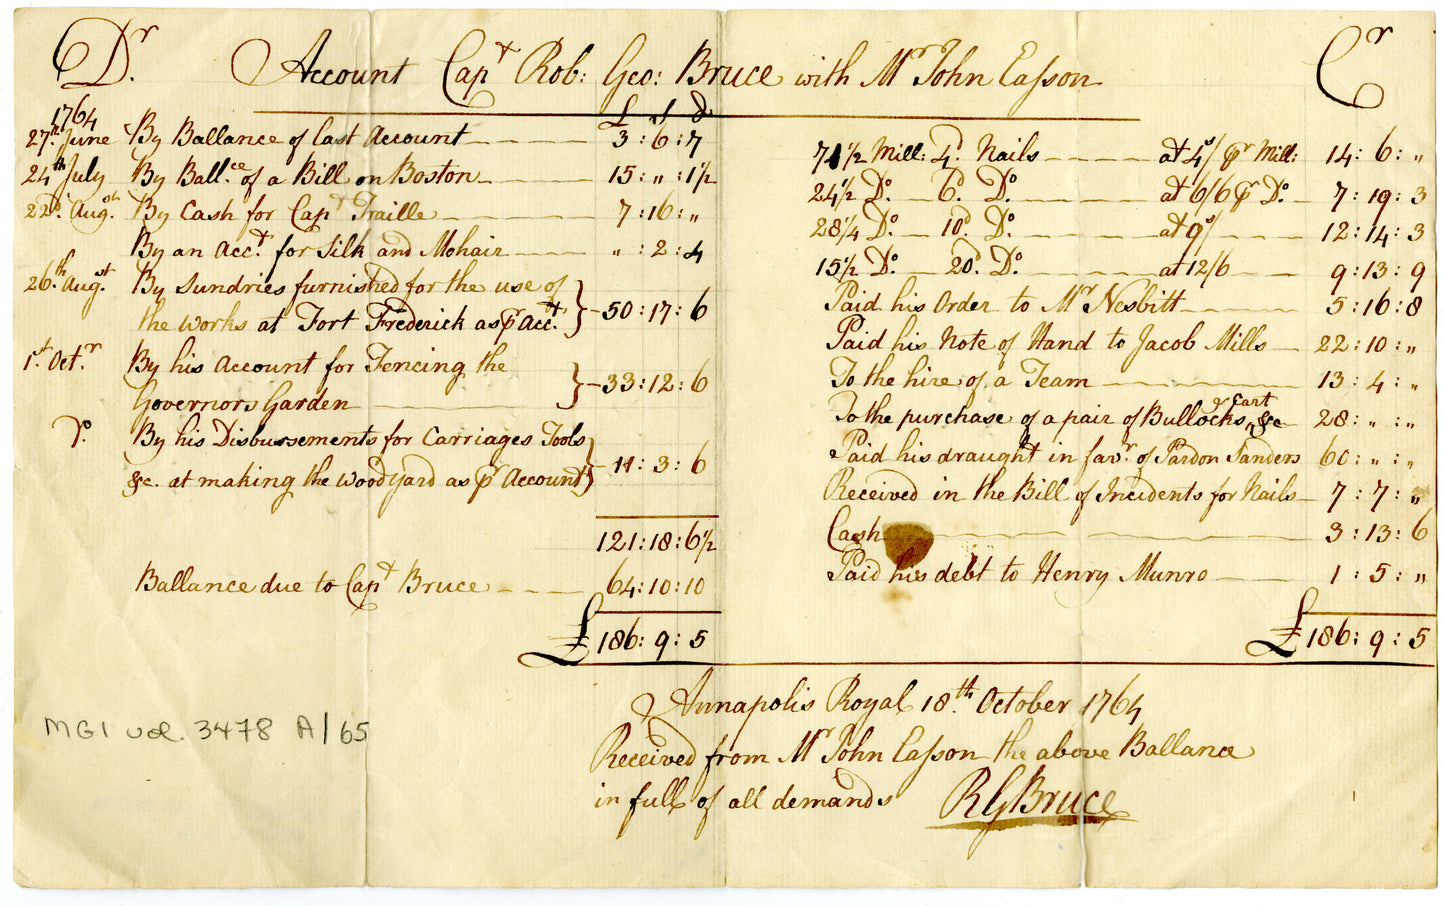 Dr. Account Capt Rob: Geo: Bruce with Mr John Easson Cr
1764 £ s D
27th June By Ballance of Last Account 3 : 6 : 7
24th July By Ballce of a Bill on Boston 15 : „ : 1½
22d Augst By Cash for Capt Traille 7 : 16 : „
By an acct for Silk and Mohair „ : 2 : 4
26th Augst By Sundries furnished for the use of
the works at Fort Frederick as pr Acct. } 50 : 17 : 6
1st Octr By his Account for Fencing the
Governors Garden } 33 : 12 : 6
Do. By his Disbussements for Carriages Tools
&c. at making the Wood Yard as pr Account } 11 : 3 : 6
121 : 18 : 6½
Ballance due to Capt Bruce 64 : 10 : 10
£ 186 : 9 : 5
71½ Mill: 4d. Nails at 4s/ pr Mill: 14 : 6 : „
24½ Do 6d. Do. at 6/6 pr Do. 7 : 19 : 3
28¼ Do 10d. Do. at 9s/ 12 : 14 : 3
15½ Do 20d. Do. at 12/6 9 : 13 : 9
Paid his Order to Mr Nesbitt 5 : 16 : 8
Paid his Note of Hand to Jacob Mills 22 : 10 : „
To the hire of a Team 13 : 4 : „
To the purchase of a pair of Bullocks & Cart &c 28 : „ : „
Paid his draught in favr. of Pardon Sanders 60 : „ : „
Received in the Bill of Incidents for Nails 7 : 7 : „
Cash 3 : 13 : 6
Paid his debt to Henry Munro 1 : 5 : „
£ 186 : 9 : 5
Annapolis Royal 18th. October 1764
Received from Mr John Easson the above Ballance
in full of all demands RGBruce
MG1 vol. 3478 A/65